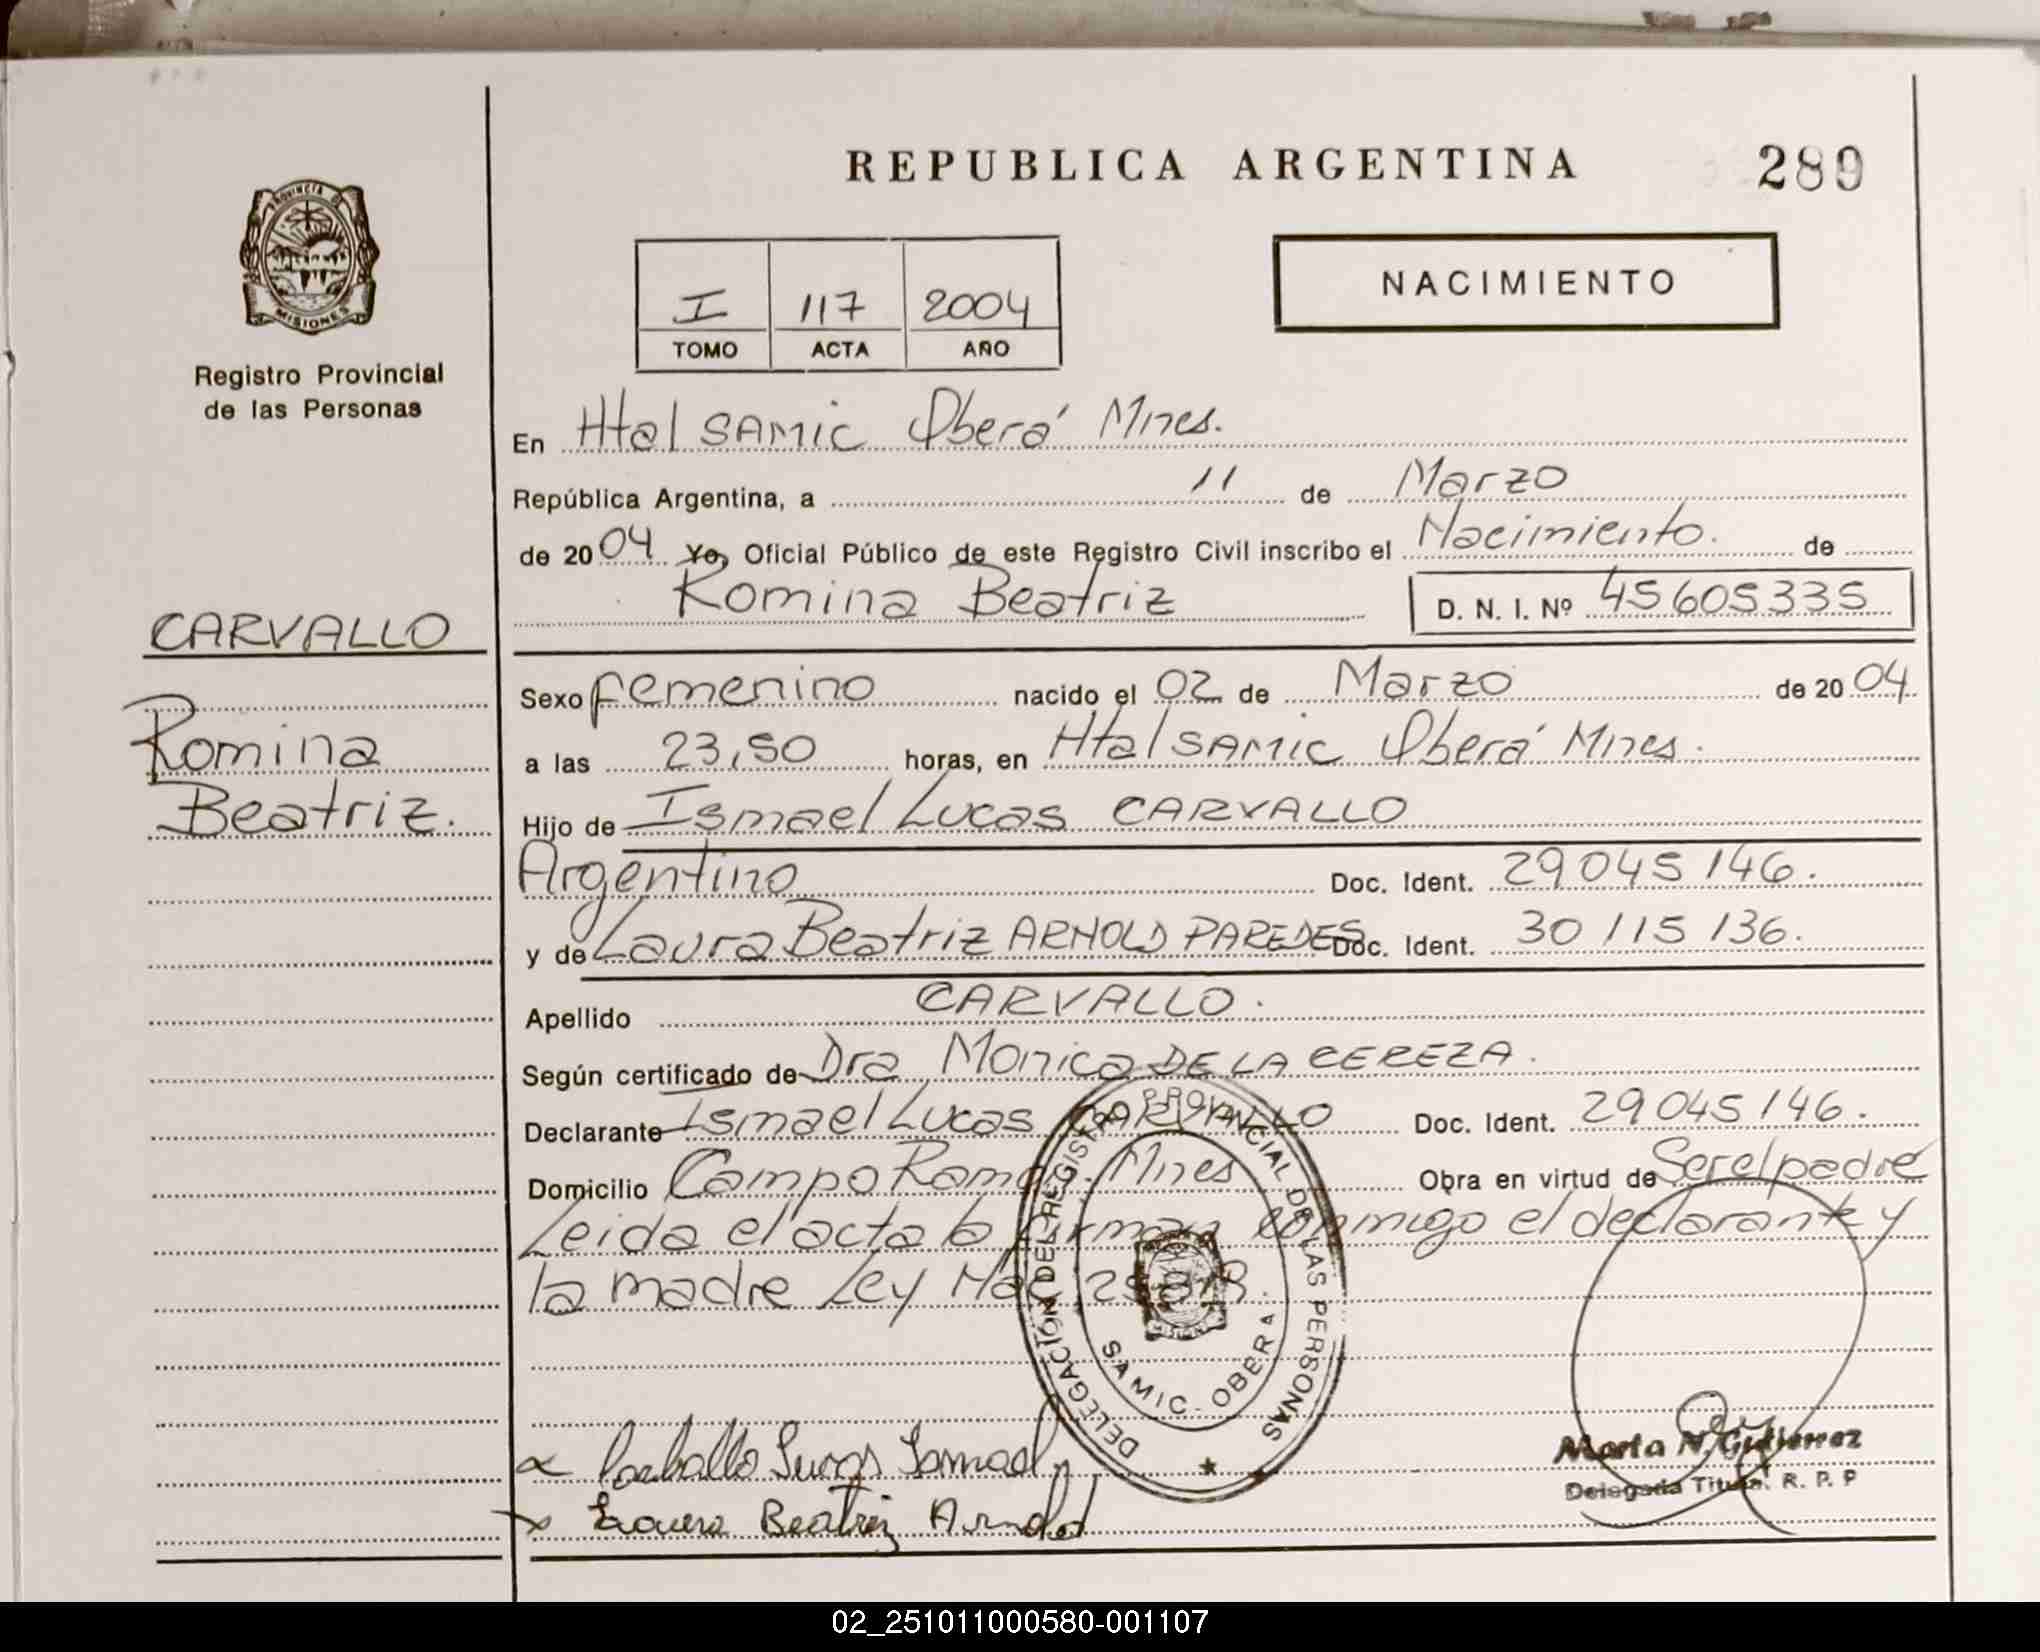 REPUBLICA ARGENTINA
289
PROVINCIA DE
MISIONES
Registro Provincial
de las Personas
I 117 2004
TOMO ACTA AÑO
NACIMIENTO
En Htal SAMIC Oberá Mnes.
República Argentina, a 11 de Marzo
de 2004 Yo, Oficial Público de este Registro Civil inscribo el Nacimiento. de
Romina Beatriz D. N. I. Nº 45605335
CARVALLO
Romina
Beatriz.
Sexo femenino nacido el 02 de Marzo de 2004
a las 23,50 horas, en Htal SAMIC Oberá Mnes.
Hijo de Ismael Lucas CARVALLO
Argentino Doc. Ident. 29045146.
y de Laura Beatriz ARNOLD PAREDES Doc. Ident. 30115136.
Apellido CARVALLO.
Según certificado de Dra Monica DE LA CEREZA.
Declarante Ismael Lucas CARVALLO Doc. Ident. 29045146.
Domicilio Campo Ramón. Mnes Obra en virtud de Ser el padre
Leida el acta la firman conmigo el declarante y
la madre Ley Nac
DELEGACIÓN DEL REGISTRO PROVINCIAL DE LAS PERSONAS
MISIONES
SAMIC - OBERA
Carballo Lucas Ismael
Laura Beatriz Arnold
Marta N. Gutierrez
Delegada Titular R. P. P
02_251011000580-001107